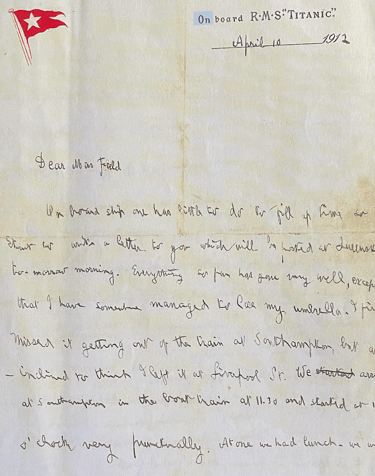 On board R·M·S "TITANIC."
April 10 1912
Dear Mrs Field
On board ship one has little to do to fill up time so
to write a letter to you which will be posted at Queenst
to-morrow morning. Everything so far has gone very well, excep
that I have somehow managed to lose my umbrella. I fi
missed it getting out of the train at Southampton, but a
– inclined to think I left it at Liverpool St. We started arr
at Southampton in the boat train at 11.30 and started at 1
o'clock very punctually. At one we had lunch – we w